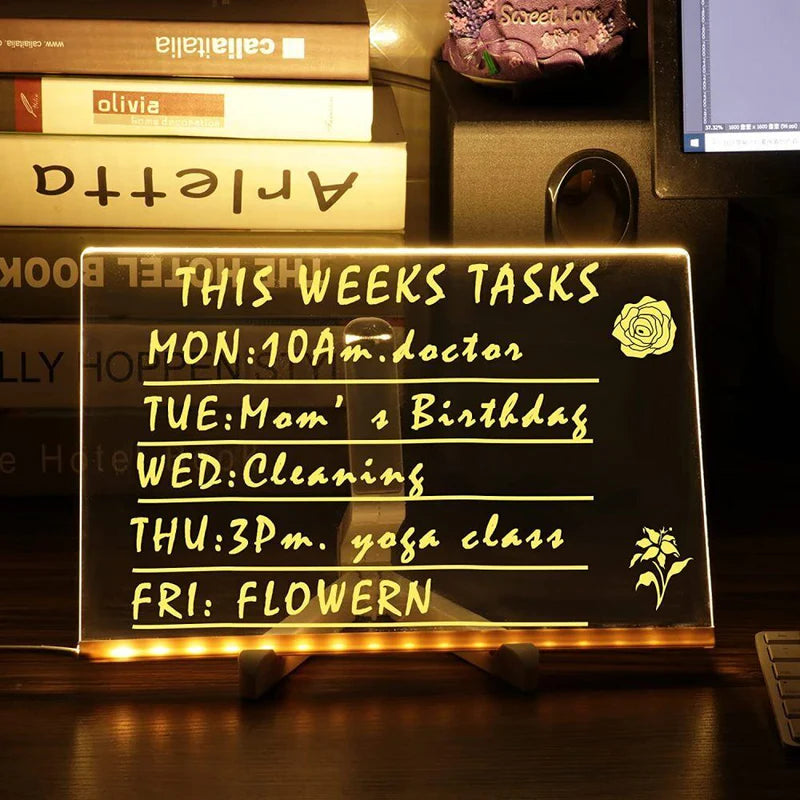 Sweet Love
caliaitalia
www.caliaitalia
olivia
Home decoration
Arletta
THE HOTEL BOOK
LLY HOPPEN STYL
e Hotel Book
37.32%
THIS WEEKS TASKS
MON:10Am.doctor
TUE:Mom's Birthday
WED:Cleaning
THU:3Pm. yoga class
FRI: FLOWERN